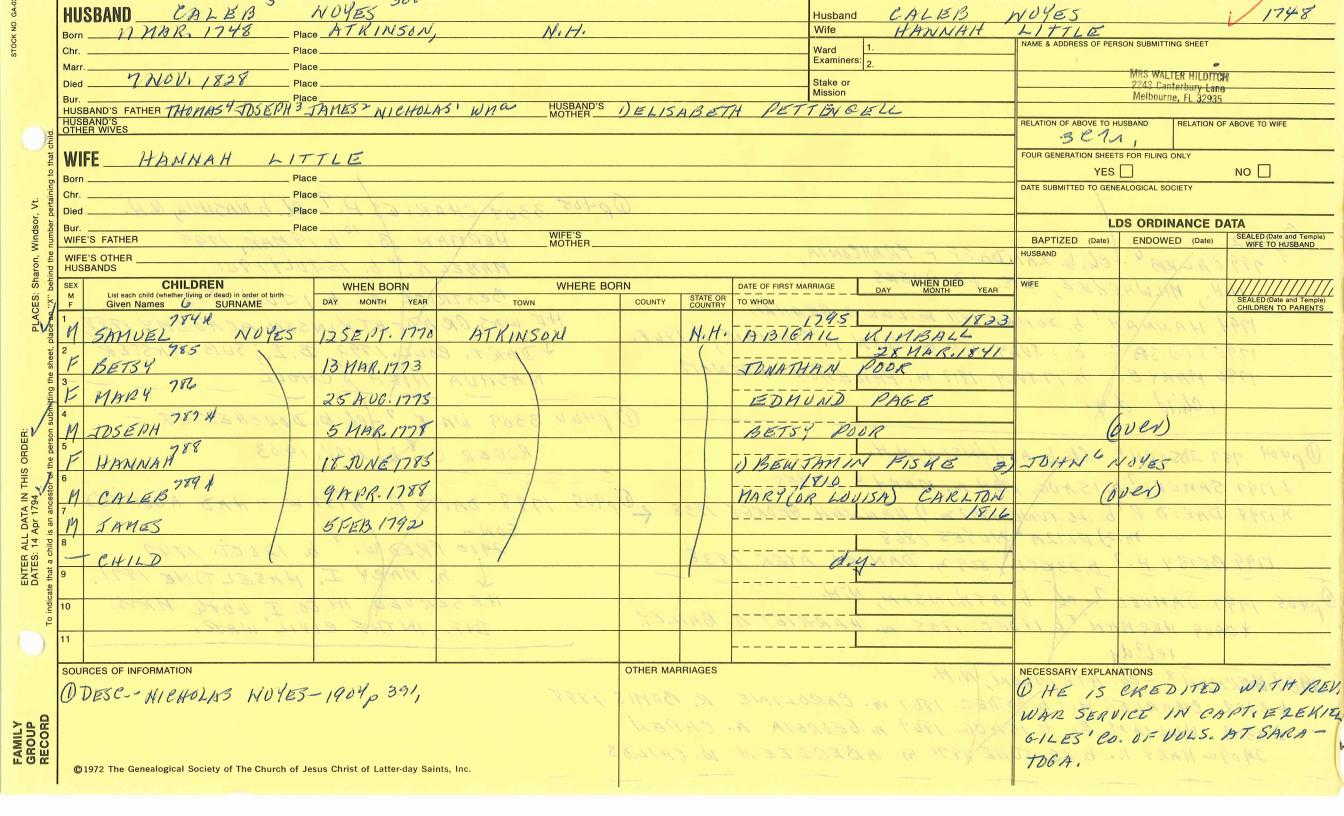 HUSBAND CALEB NOYES
Born 17 MAR. 1748 Place ATKINSON, N.H.
Chr. Place
Marr. Place
Died 7 NOV. 1828 Place
Bur. Place
HUSBAND'S FATHER THOMAS⁴ JOSEPH³ JAMES² NICHOLAS¹ WMᵃ HUSBAND'S MOTHER 1) ELISABETH PETTENGELL
HUSBAND'S OTHER WIVES
WIFE HANNAH LITTLE
Born Place
Chr. Place
Died Place
Bur. Place
WIFE'S FATHER WIFE'S MOTHER
WIFE'S OTHER HUSBANDS
Husband CALEB NOYES 1748
Wife HANNAH LITTLE
Ward Examiners: 1. 2.
Stake or Mission
NAME & ADDRESS OF PERSON SUBMITTING SHEET
MRS WALTER HILDITCH
2243 Canterbury Lane
Melbourne, FL 32935
RELATION OF ABOVE TO HUSBAND RELATION OF ABOVE TO WIFE
FOUR GENERATION SHEETS FOR FILING ONLY
YES NO
DATE SUBMITTED TO GENEALOGICAL SOCIETY
LDS ORDINANCE DATA
BAPTIZED (Date) ENDOWED (Date) SEALED (Date and Temple) WIFE TO HUSBAND
HUSBAND
WIFE
SEALED (Date and Temple) CHILDREN TO PARENTS
SEX M F CHILDREN WHEN BORN WHERE BORN DATE OF FIRST MARRIAGE WHEN DIED
List each child (whether living or dead) in order of birth
Given Names 6 SURNAME DAY MONTH YEAR TOWN COUNTY STATE OR COUNTRY TO WHOM DAY MONTH YEAR
1 784 1795 1823
M SAMUEL NOYES 12 SEPT. 1770 ATKINSON N.H. ABIGAIL KIMBALL
2 785 28 MAR. 1841
F BETSY 13 MAR. 1773 JONATHAN POOR
3 786
F MARY 25 AUG. 1775 EDMUND PAGE
4 787
M JOSEPH 5 MAR. 1778 BETSY POOR (over)
5 788
F HANNAH 18 JUNE 1785 1) BENJAMIN FISKE 2) JOHN⁶ NOYES
6 789 1810
M CALEB 9 APR. 1788 MARY (OR LOUISA) CARLTON (over)
7 1816
M JAMES 5 FEB. 1792
8
— CHILD d.y.
9
10
11
SOURCES OF INFORMATION
① DESC.- NICHOLAS NOYES - 1904 p 391,
©1972 The Genealogical Society of The Church of Jesus Christ of Latter-day Saints, Inc.
OTHER MARRIAGES
NECESSARY EXPLANATIONS
① HE IS CREDITED WITH REV.
WAR SERVICE IN CAPT. EZEKIE
GILES' CO. OF VOLS. AT SARA-
TOGA.
STOCK NO.
ENTER ALL DATA IN THIS ORDER:
DATES: 14 Apr 1794
PLACES: Sharon, Windsor, Vt.
To indicate that a child is an ancestor of the person submitting the sheet, place an "X" behind the number pertaining to that child.
FAMILY
GROUP
RECORD